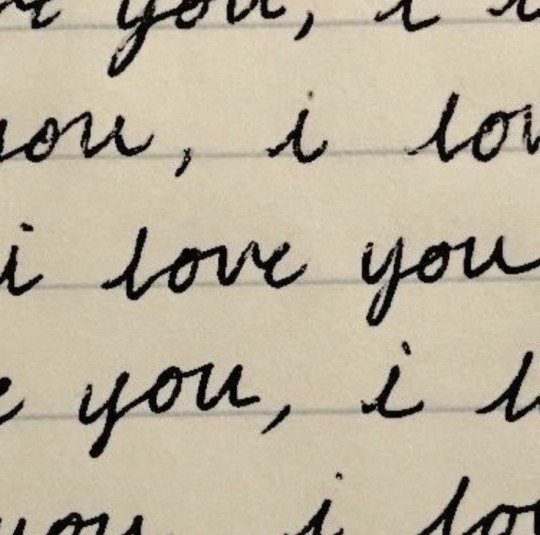 you, i
you, i lov
i love you
you, i l
you i lo